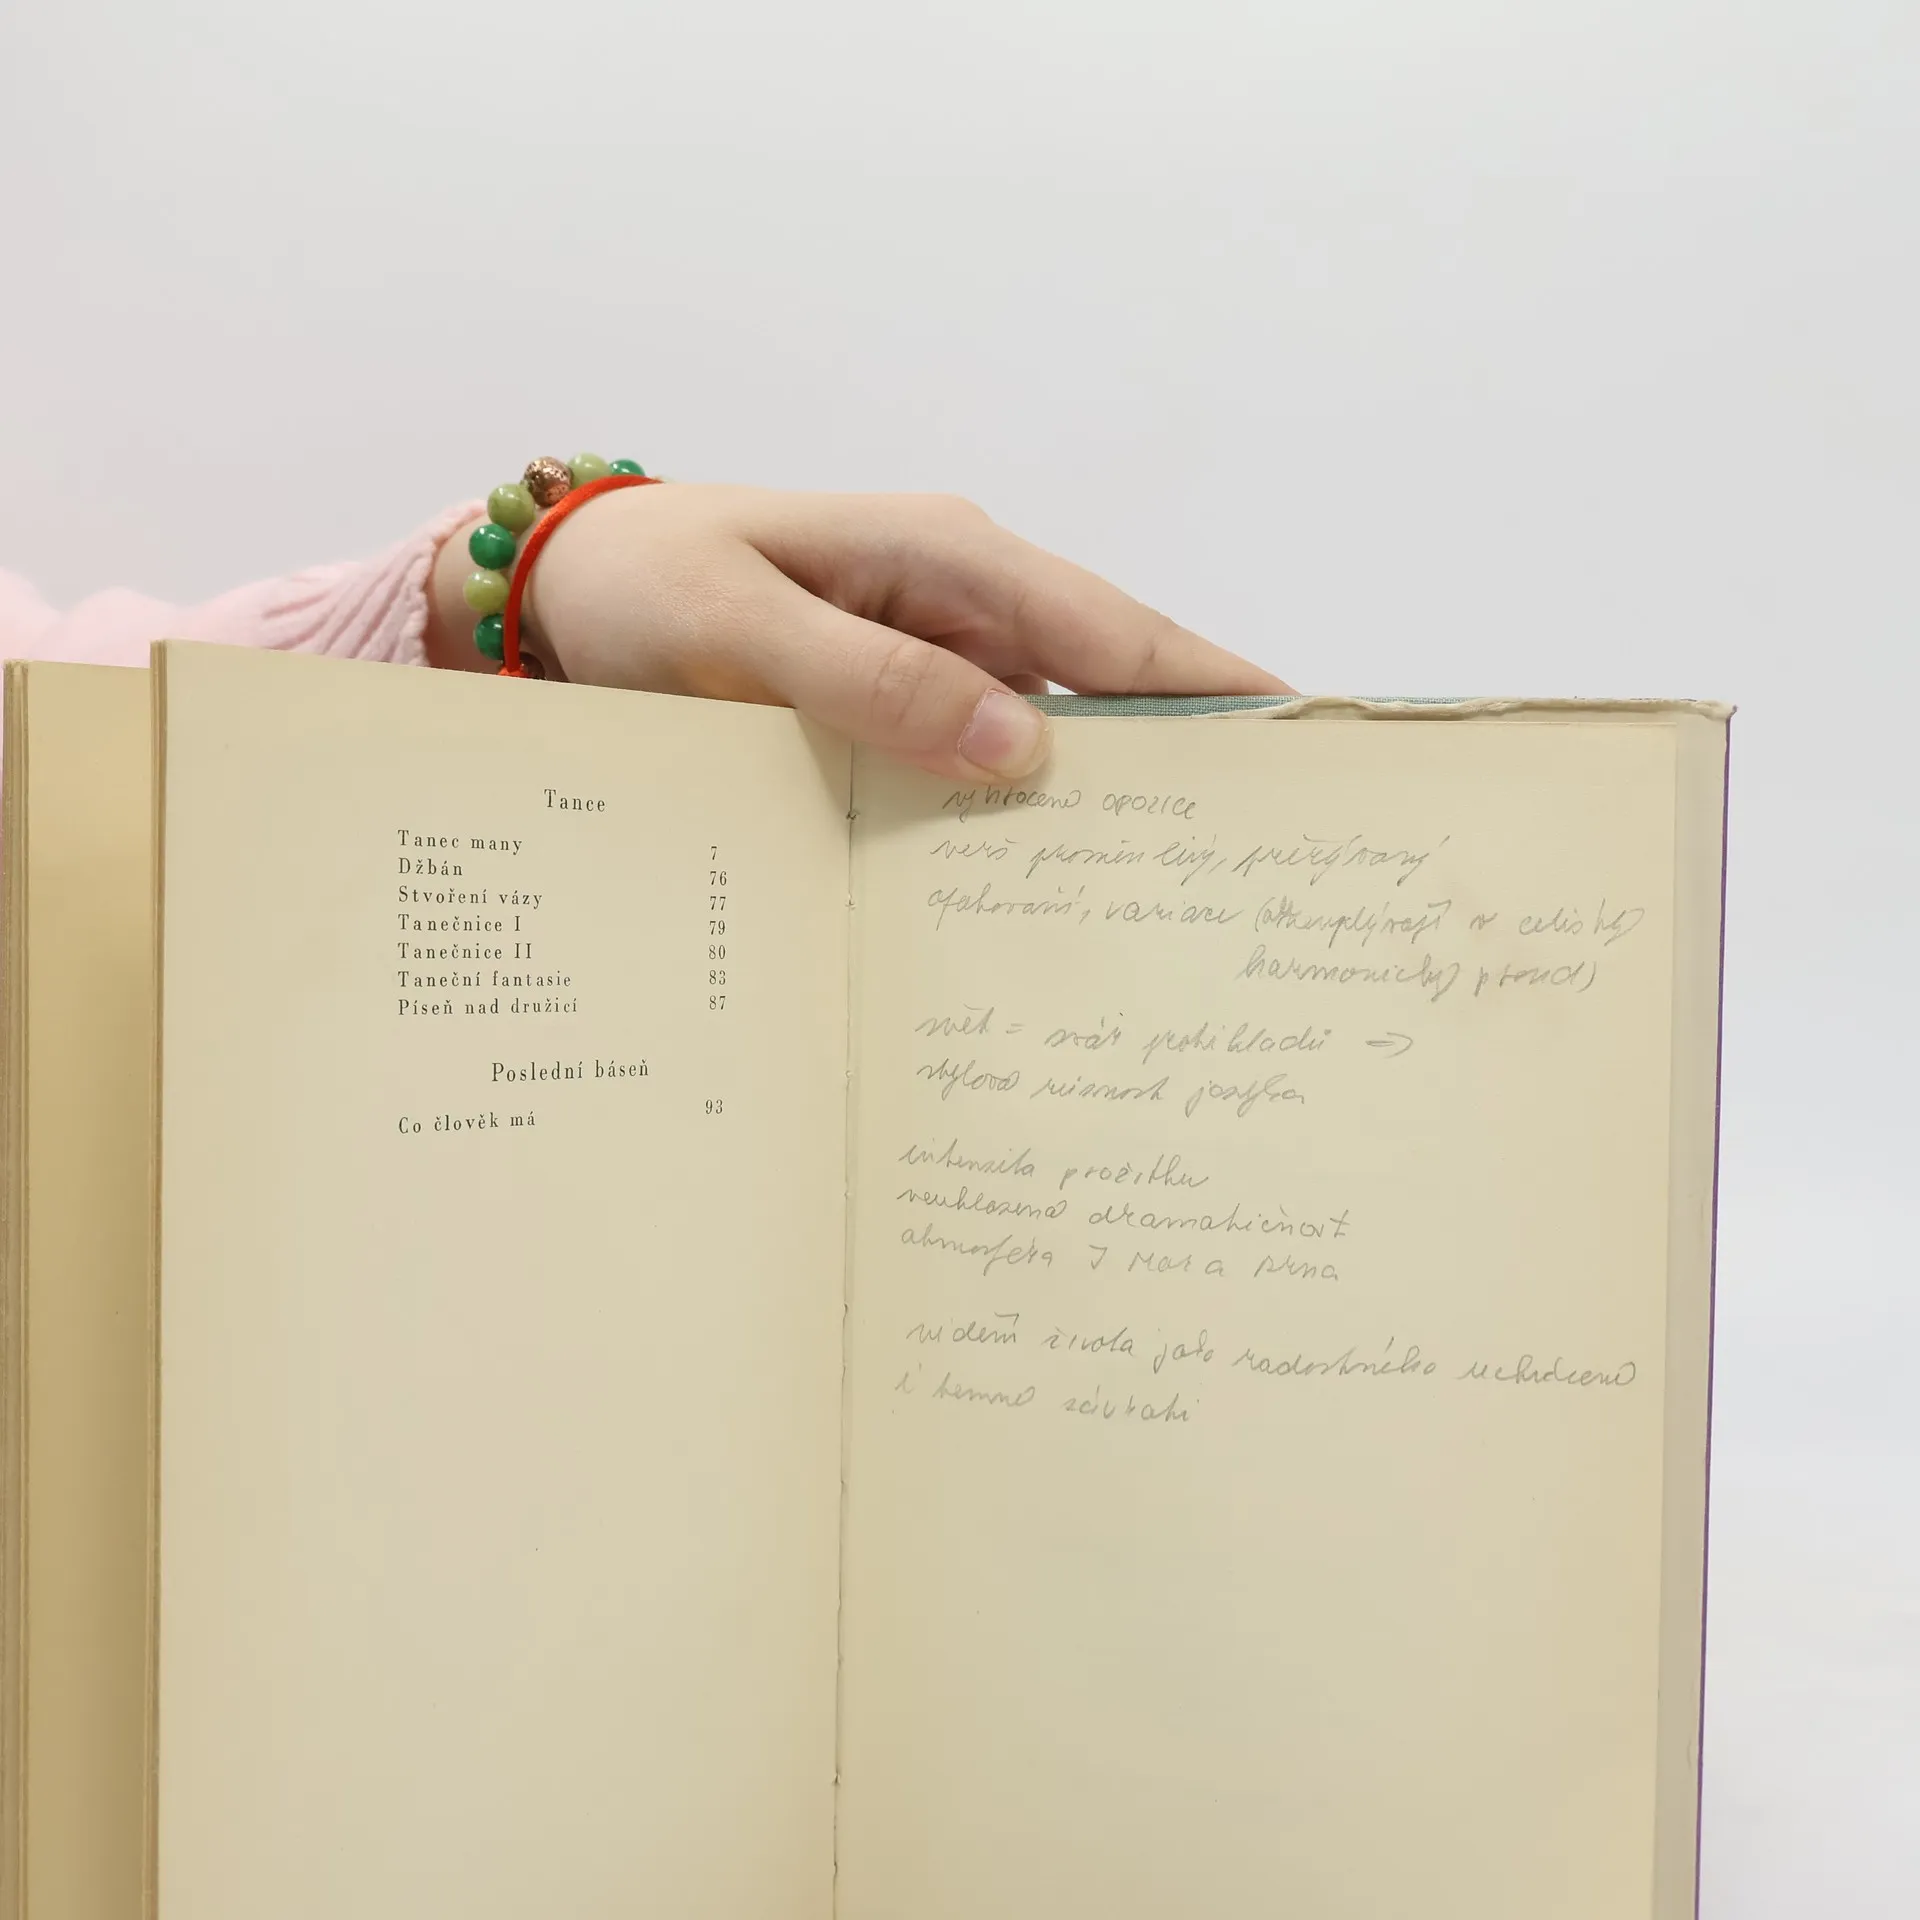 Tance
Tanec many 7
Džbán 76
Stvoření vázy 77
Tanečnice I 79
Tanečnice II 80
Taneční fantasie 83
Píseň nad družicí 87
Poslední báseň
Co člověk má 93
opozice
verš proměnlivý, přerývaný
opakování, variace v celistvý
harmonický proud)
svět = svár protikladů ⇒
stylová různost jazyka
intenzita prožitku
dramatičnost
atmosféra
vidění života jako radostného
i temné závrati